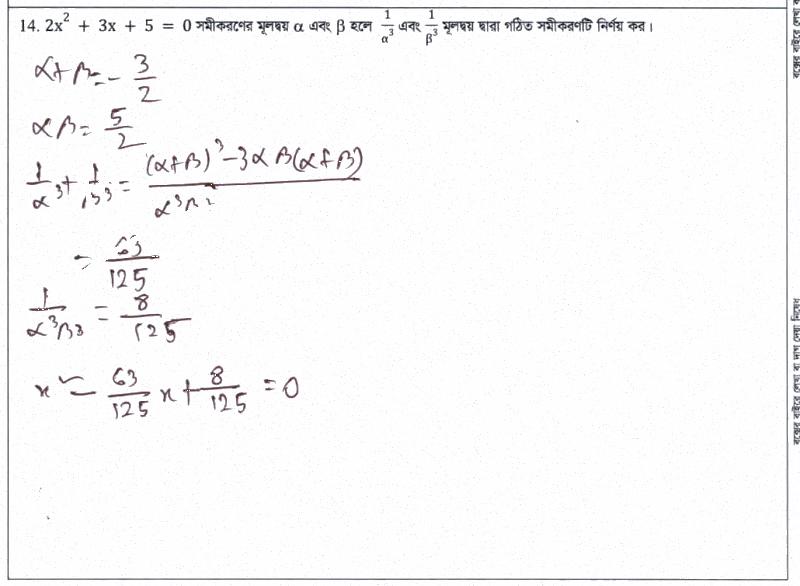 14. 2x² + 3x + 5 = 0 সমীকরণের মূলদ্বয় α এবং β হলে 1/α³ এবং 1/β³ মূলদ্বয় দ্বারা গঠিত সমীকরণটি নির্ণয় কর।
α+β = -3/2
αβ = 5/2
1/α³ + 1/β³ = ((α+β)³ - 3αβ(α+β))/α³β³
= 63/125
1/α³β³ = 8/125
x² - 63/125 x + 8/125 = 0